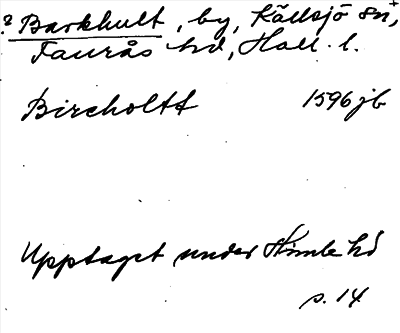 ? Barkhult, by, Källsjö sn,+
Faurås hd, Hall. l.
Bircholtt 1596 jb
Upptaget under Himle hd
s. 14